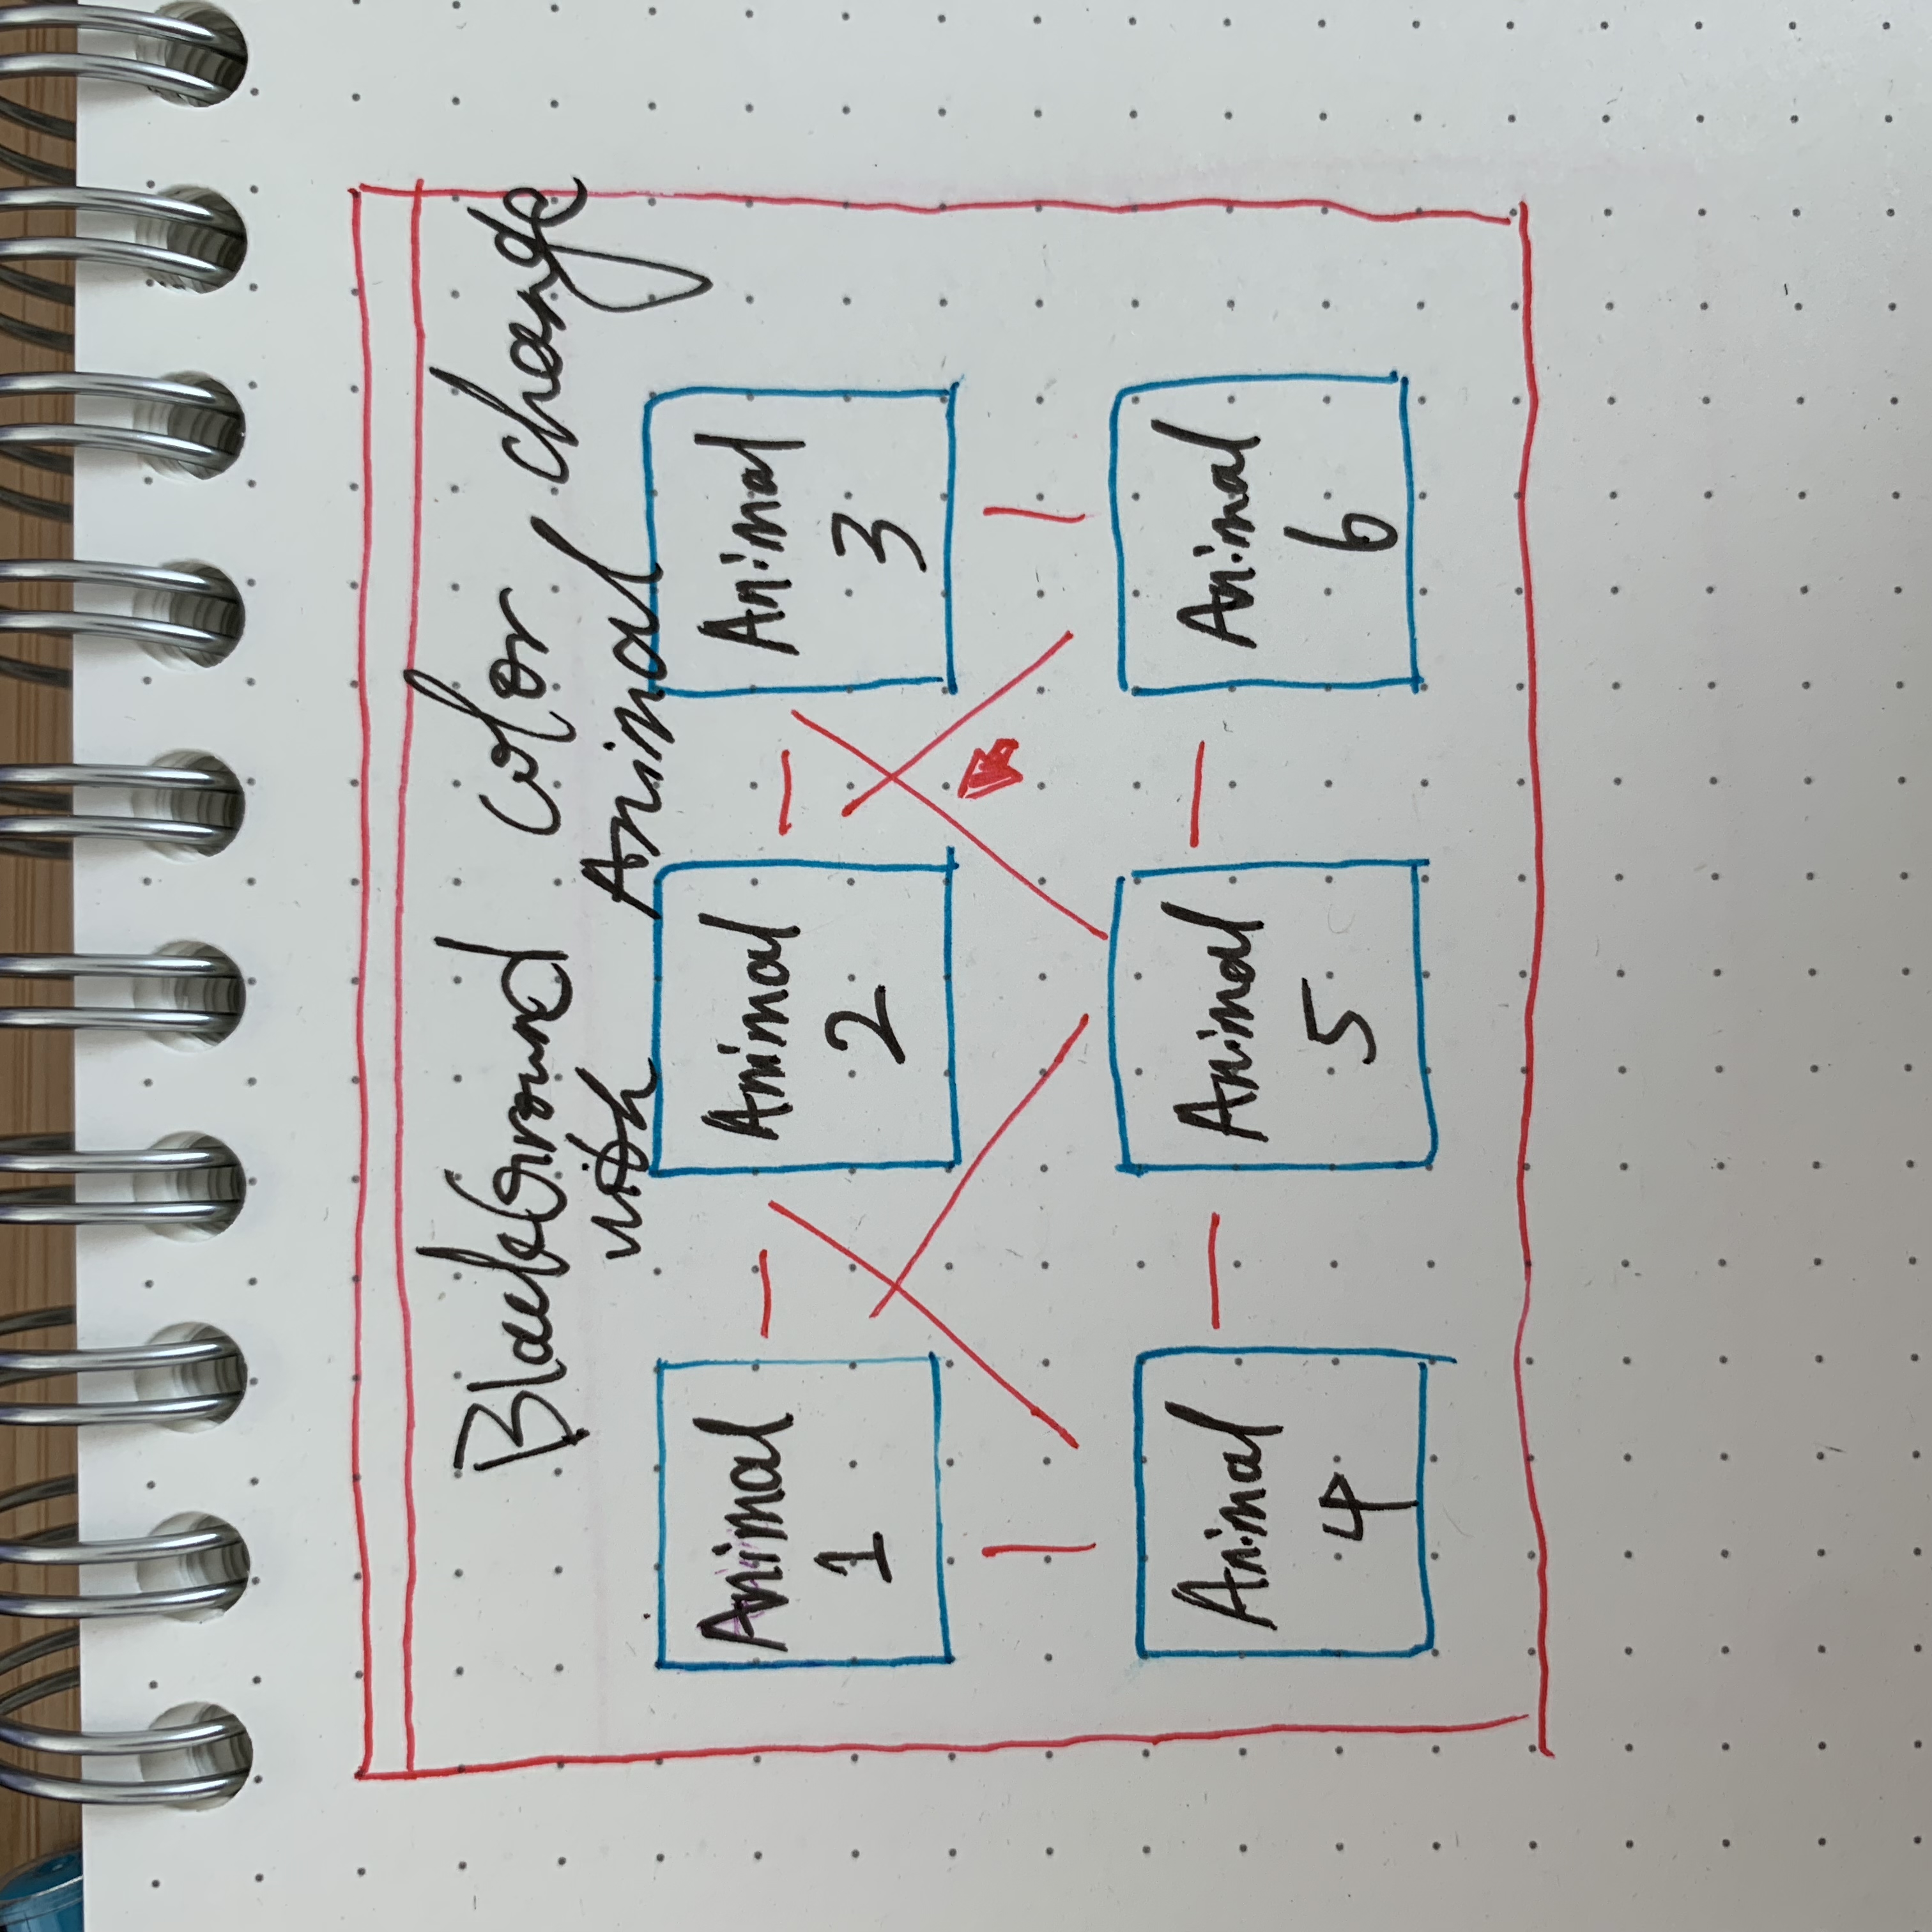 BlackGround color change
with Animal
Animal
1
Animal
2
Animal
3
Animal
4
Animal
5
Animal
6